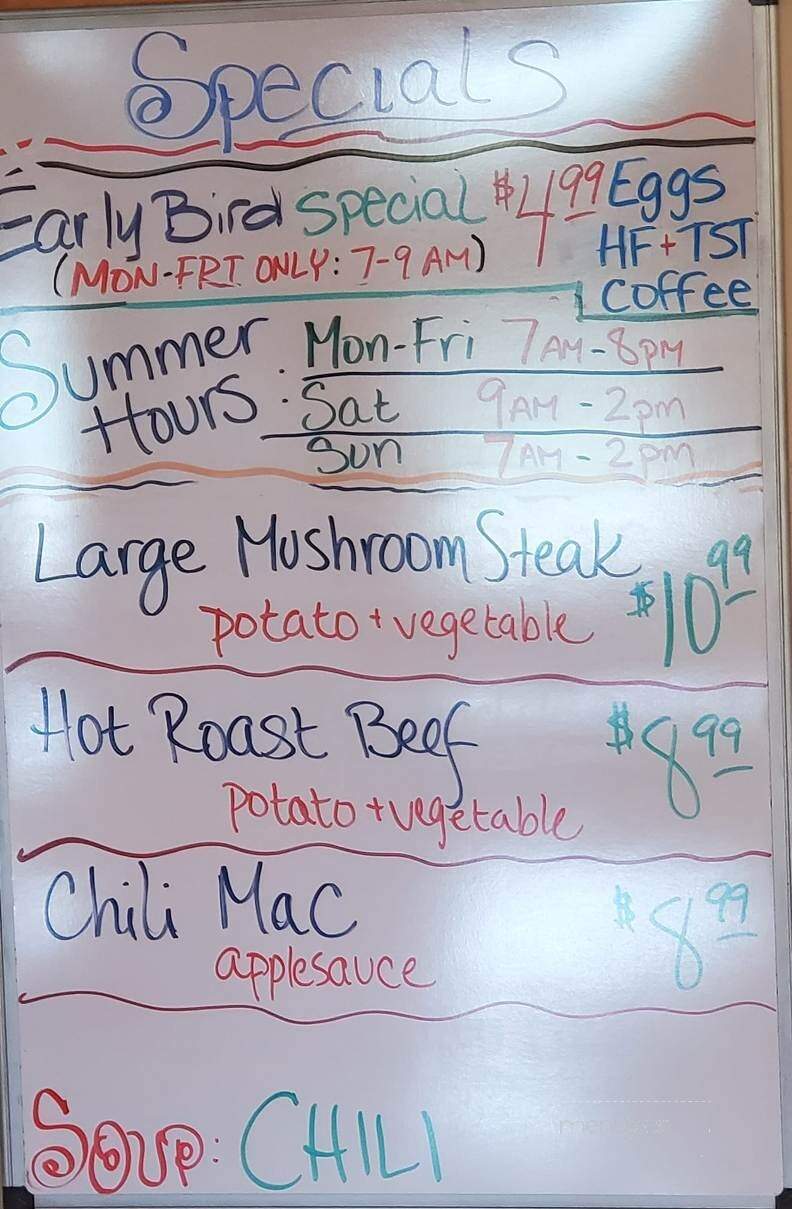 Specials
Early Bird Special $4.99 Eggs
(MON-FRI ONLY: 7-9 AM) HF + TST
Coffee
Summer Hours: Mon-Fri 7AM-8PM
Sat 9AM-2pm
Sun 7AM-2pm
Large Mushroom Steak $10.99
potato + vegetable
Hot Roast Beef $8.99
potato + vegetable
Chili Mac $8.99
applesauce
Soup: CHILI